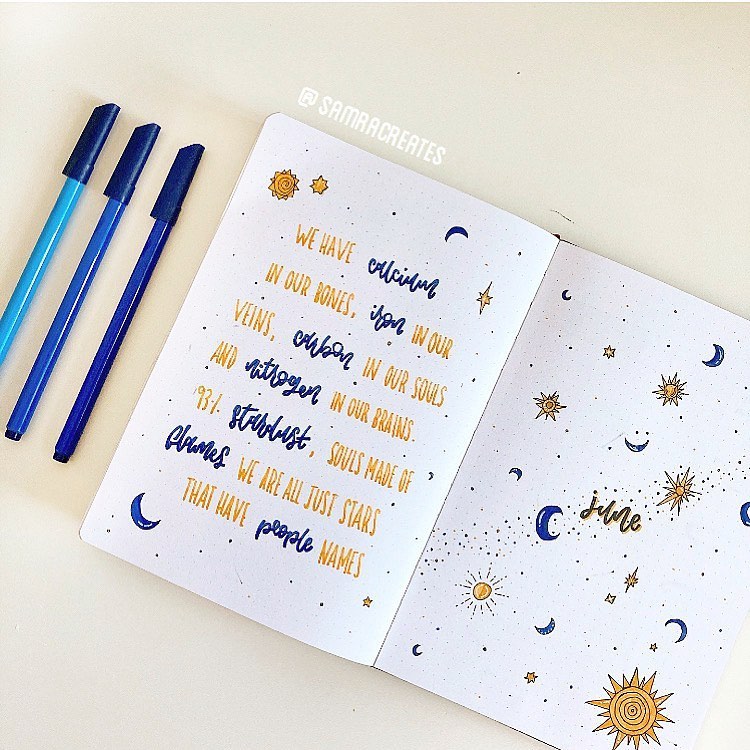 @SAMRACREATES
WE HAVE calcium
IN OUR BONES, iron IN OUR
VEINS, carbon IN OUR SOULS
AND nitrogen IN OUR BRAINS.
93% stardust, SOULS MADE OF
flames WE ARE ALL JUST STARS
THAT HAVE people NAMES
june